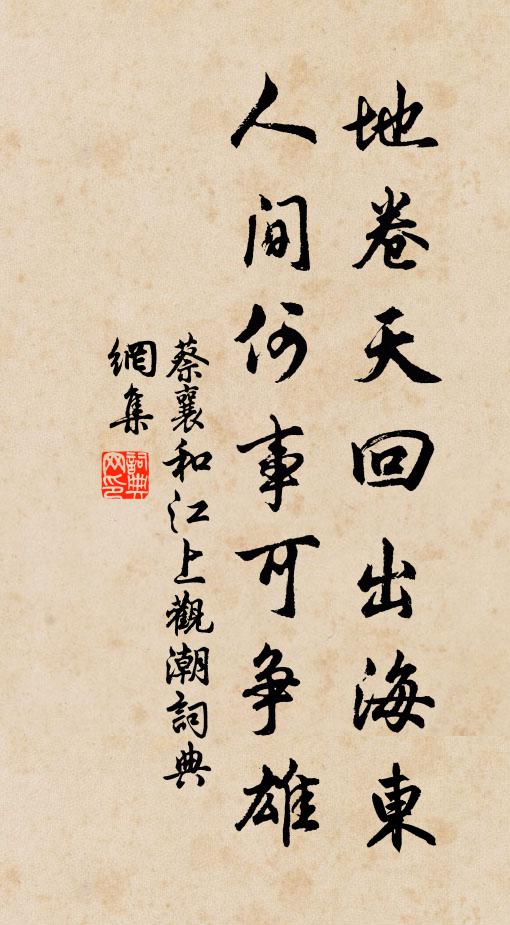 地卷天回出海東
人间何事可争雄
蔡襄和江上觀潮詞典
網集
詞典
网印